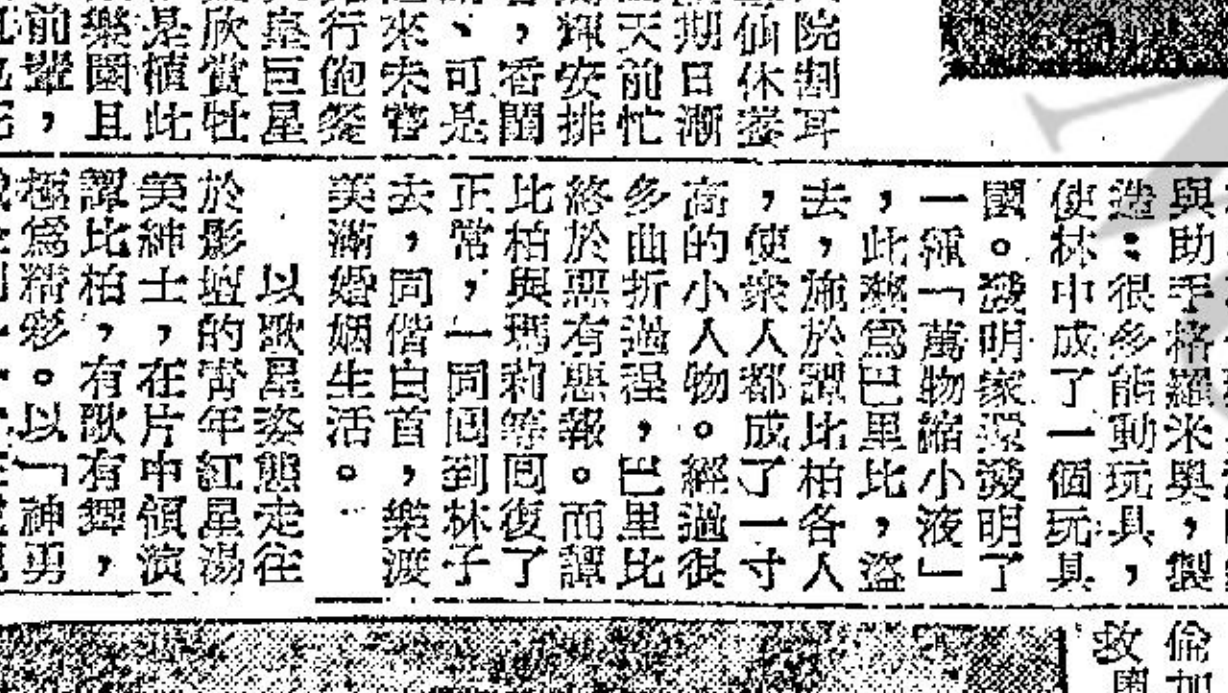 院割耳
仙休養
期日漸
天前忙
輝安排
，看關
、可是
來未嘗
行飽餐
皇巨星
欣賞牡
是植此
樂園且
前輩，
與助手格羅米奧，製
造：很多能動玩具，
使林中成了一個玩具
國。發明家還發明了
一種「萬物縮小液」
，此液爲巴里比，盜
去，施於譚比柏各人
，使衆人都成了一寸
高的小人物。經過很
多曲折過程，巴里比
終於惡有惡報。而譚
比柏與瑪莉等回復了
正常，一同回到林子
去，同偕白首，樂渡
美滿婚姻生活。
以歌星姿態走往
於影壇的靑年紅星湯
美紳士，在片中領演
譚比柏，有歌有舞，
極爲精彩。以「神勇
倫加
救